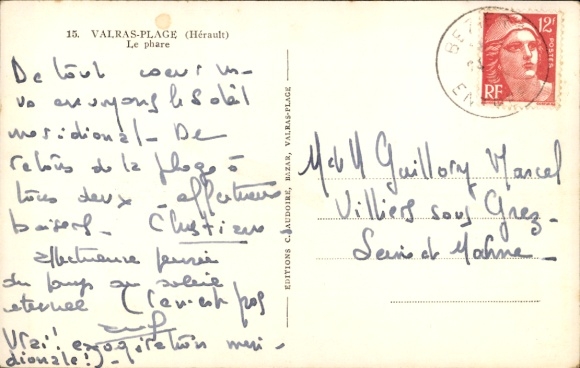 15. VALRAS-PLAGE (Hérault)
Le phare
De tout coeur nous
vs envoyons le Soleil
méridional - De
retour de la plage à
tous deux affectueux
baisers - Christiane
affectueuse pensée
du pays au soleil
éternel (Ça n'est pas
Vrai! exagération méri-
dionale!) -
EDITIONS C. BAUDOIRE, BAZAR, VALRAS-PLAGE
12F
POSTES
RF
M et Mme Guillory Marcel
Villiers sous Grez -
Seine et Marne -